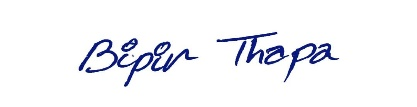 Bipin Thapa